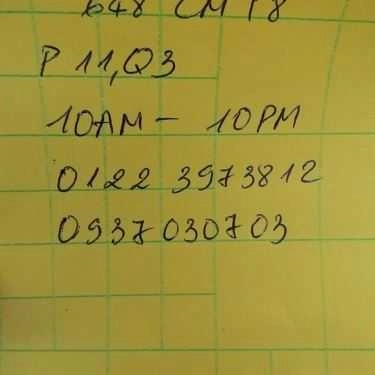 648 CMT8
P 11, Q3
10AM - 10PM
0122 3973812
0937 030703